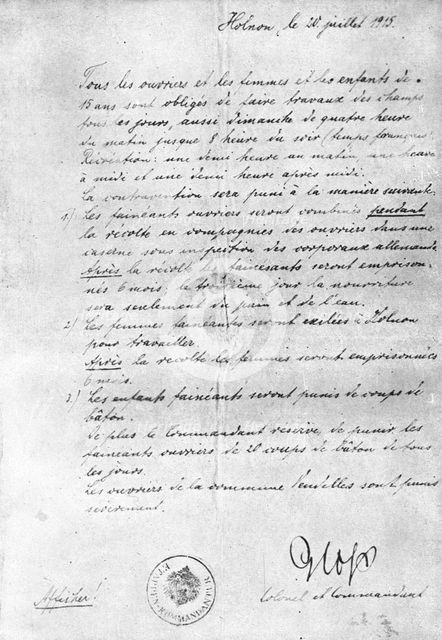 Holnon, le 20. juillet 1915.
Tous les ouvriers et les femmes et les enfants de
15 ans sont obligés de faire travaux des champs
tous les jours, aussi dimanche de quatre heure
du matin jusque 8 heure du soir (temps français).
Récréation: une demi heure au matin, une heure
à midi et une demi heure après midi.
La contravention sera puni à la manière suivante
1.) Les fainéants ouvriers seront combinés pendant
la récolte en compagnies des ouvriers dans une
caserne sous inspection des corporaux allemands
Après la récolte les fainéants seront emprison-
nés 6 mois, le troisième jour la nourriture
sera seulement du pain et de l'eau.
2.) Les femmes fainéantes seront exilées à Holnon
pour travailler.
Après la récolte les femmes seront emprisonnées
6 mois.
3.) Les enfants fainéants seront punis de coups de
bâton.
De plus le Commandant reserve, de punir les
fainéants ouvriers de 20 coups de bâton de tous
les jours.
Les ouvriers de la commune Vendelles sont punis
sévèrement.
Afficher!
ETAPPEN-KOMMANDANTUR
Colonel et Commandant